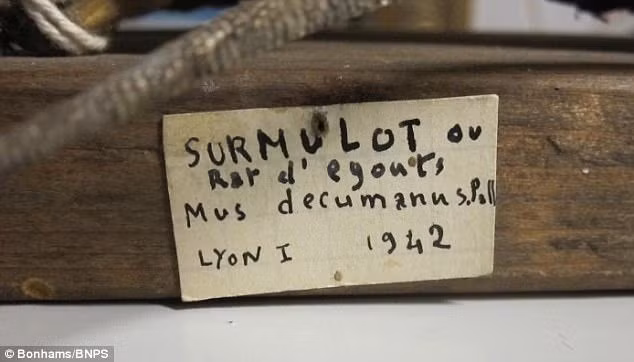 SURMULOT ou
Rat d'egouts
Mus decumanus. Pall
LYON I 1942
© Bonhams/BNPS